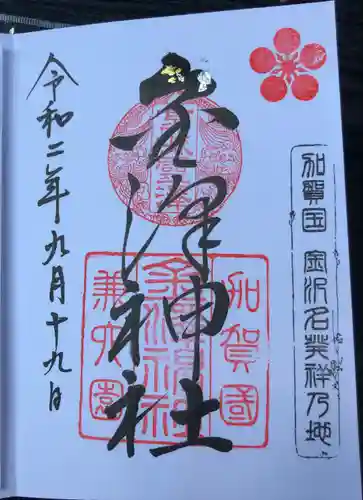 加賀国 金沢名発祥乃地
金澤神社
加賀國
金澤神社
兼六園
令和二年九月十九日